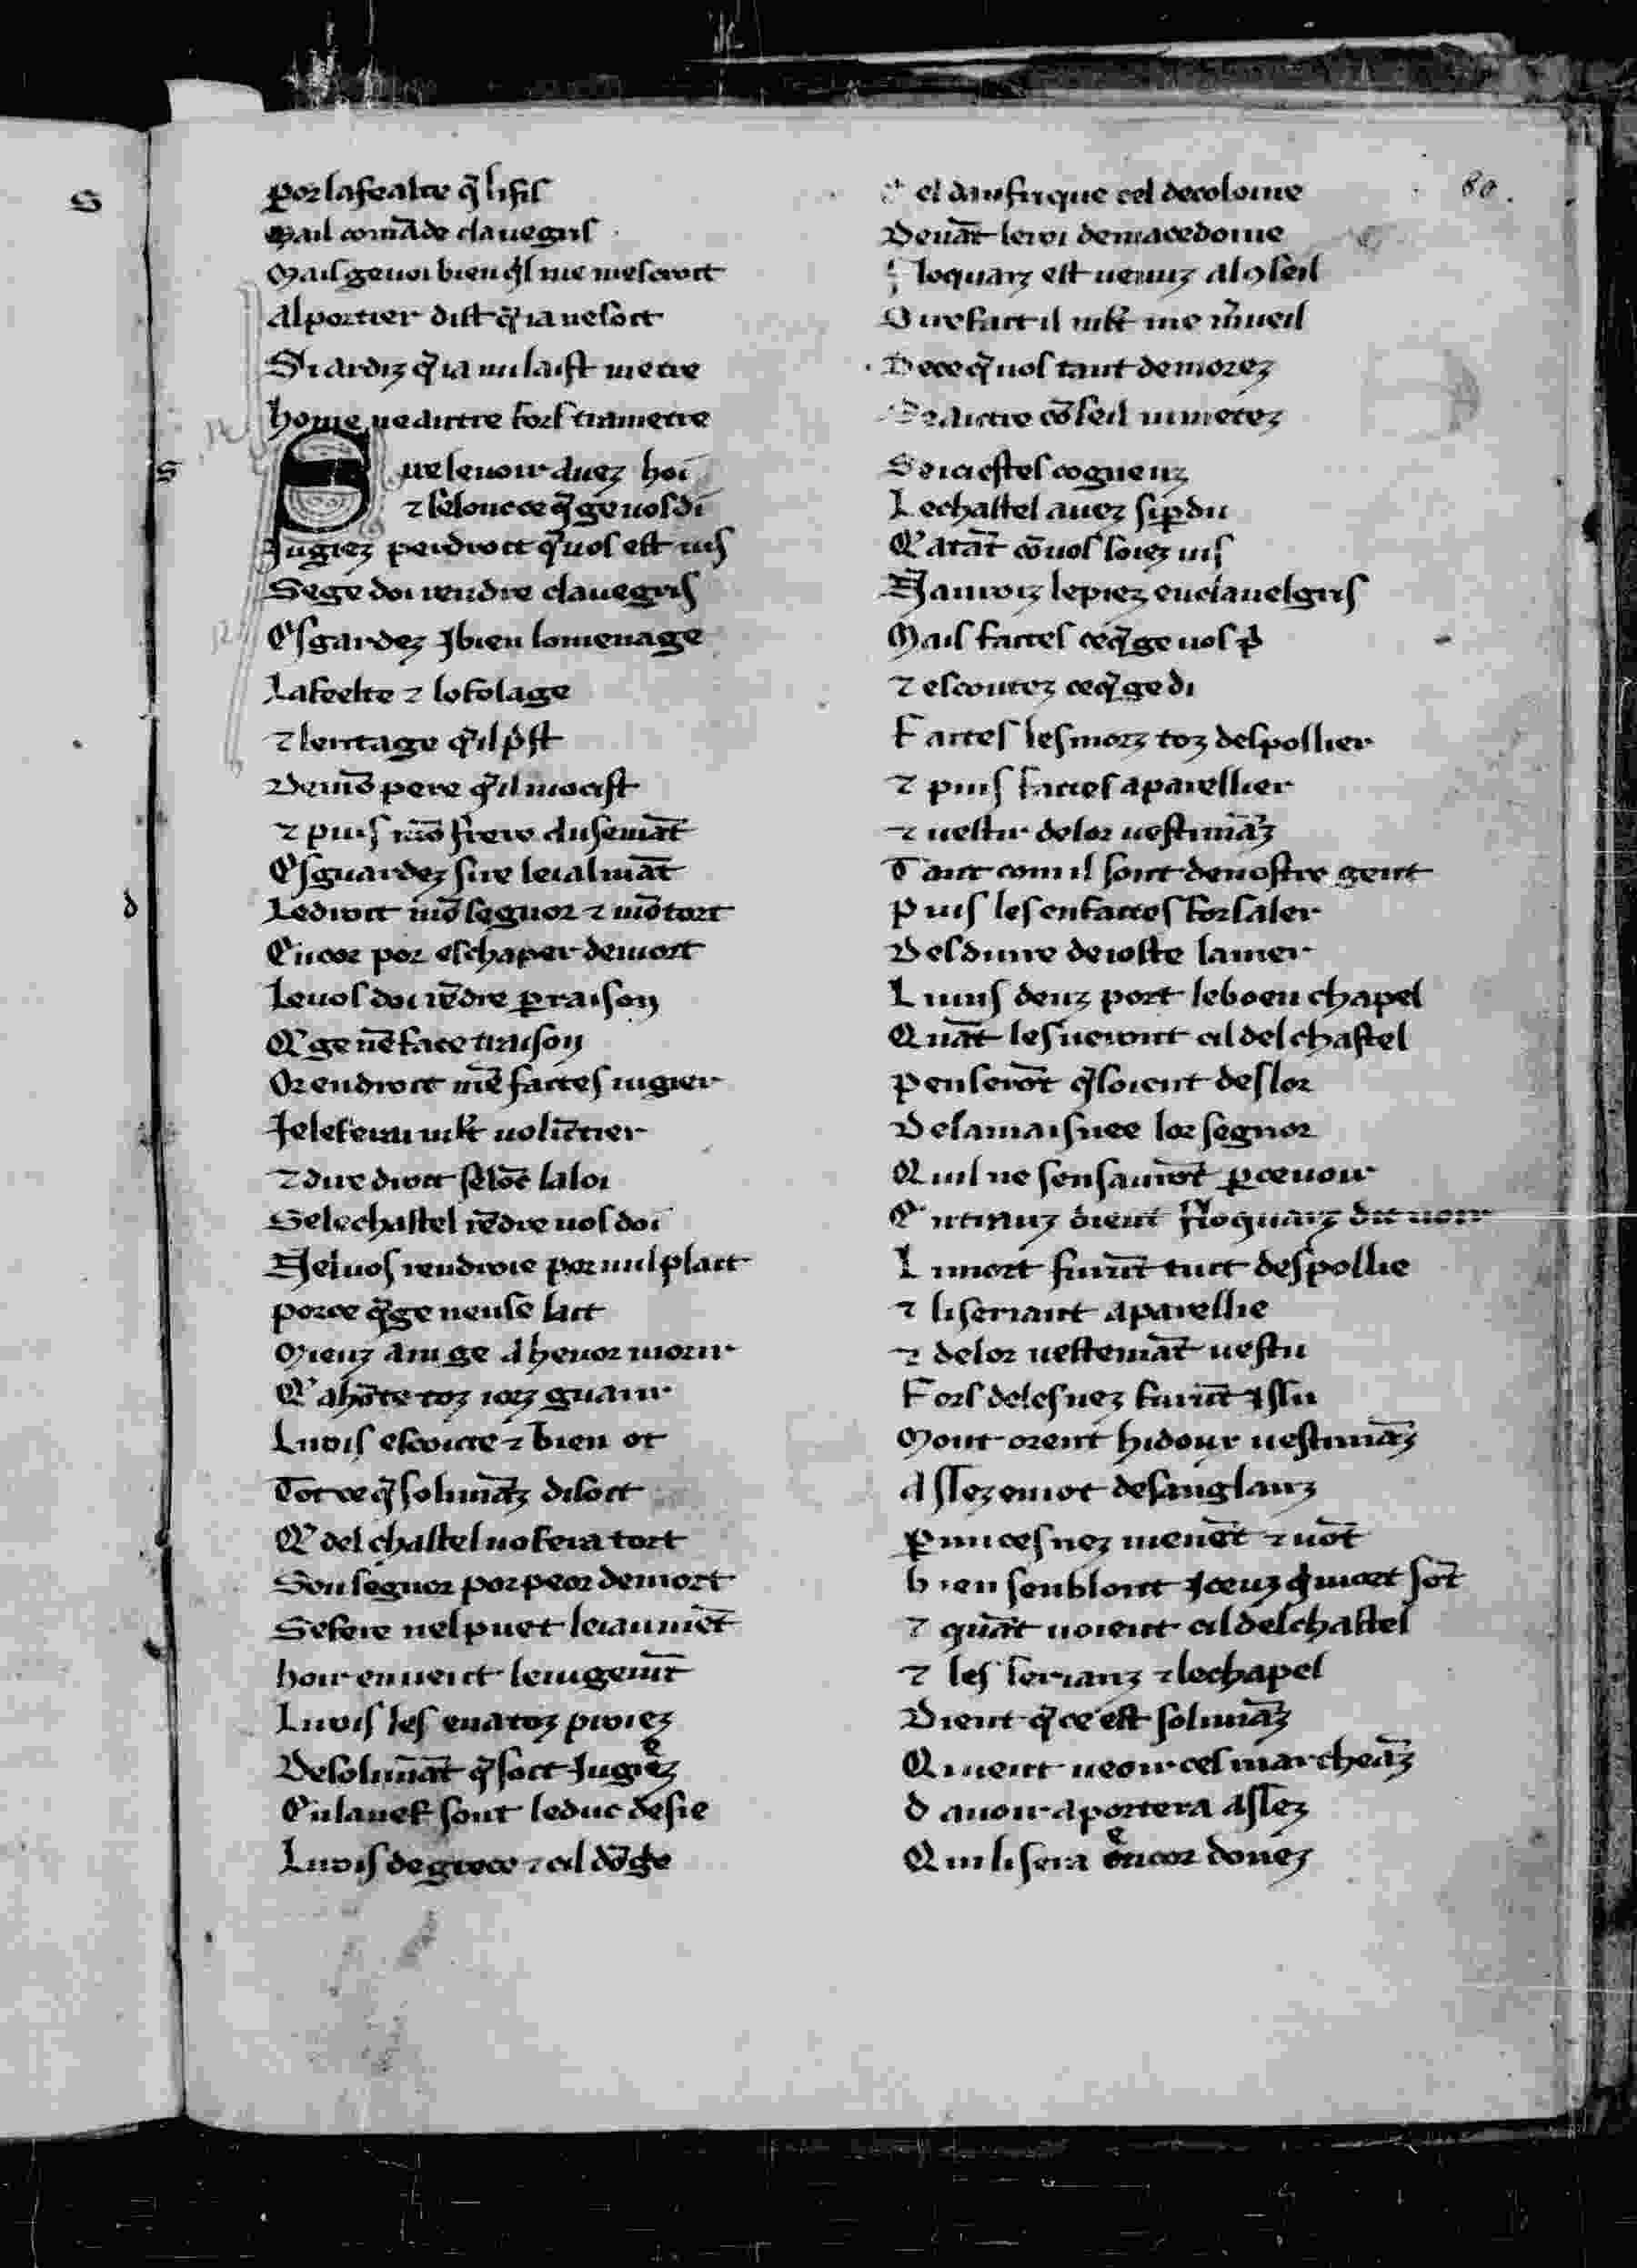 S
por la fealte q̃ li fis
Mais comãde clauegris
Mais ge uoi bien q̃l me mescroit
Al portier dist q̃ ia ne soit
Si ardiz q̃ ia nu laist metre
home ne autre fors trametre
S
ire le uoir auez hoi
⁊ selonc ce q̃ ge uos di
Jugiez per droit q̃ uos est uis
Se ge doi rendre clauegris
Esgardez i bien lomenage
La feelte ⁊ lo folage
⁊ leritage q̃ il p̃st
De mõ pere q̃ il mocist
⁊ puis mõ frere ausemãt
Esguardez sire leialmãt
d
Le droit mõ segnor ⁊ mõ tort
Encor por eschaper de mort
Le uos doi rẽdre p raison
Q' ge nẽ face traison
Orendroit mẽ faites iugier
Je le ferai uolũtier
⁊ dire droit selõc la loi
Se le chastel rẽdre uos doi
Nel uos rendroie por nul plait
por ce q̃ ge neuse lait
Mieuz ain ge a henor morir
Q' a hõte toz iorz guarir
Luois escoute ⁊ bien ot
Tot ce q̃ solimãz disoit
Q' del chastel no fera tort
Son segnor por peor de mort
Se fere nel puet leiaumẽt
hoir en ueut le iugemẽt
Luois les en a toz proiez
De solimãt q̃ soit Jugiez
En lauek sont le duc desie
Luois de grece ⁊ cil dõge
80.
el daufrique cel de colonie
Deuãt le roi de macedoine
loquarz est uenuz al ꝯseil
De ce q̃ uos tant demorez
autre cõseil ni metez
Se ici estes cogneuz
Le chastel auez si pdu
Q' a tãt cõ uos soiez uis
Nauroiz le piez en clauelgris
Mais faites ce q̃ ge uos p'
⁊ escoutez ce q̃ ge di
Faites les morz toz despollier
⁊ puis faites aparellier
⁊ uestir de lor uestimãz
Tant com il sont de nostre gent
puis les en faites fors aler
Desduire deioste la mer
L uns deuz port le boen chapel
Quãt les uerront cil del chastel
penserõt q̃ soient des lor
De la maisnee lor segnor
Quil ne sen saurõt p̱ceuoir
E'utrauz dient floquarz dit uoir
Li mort furẽt tuit despollie
⁊ li seriant aparellie
⁊ de lor uestemãt uestu
Fors de lesnez furẽt issu
Mout orent hidour uestimãz
Assez en i ot de sanglanz
p̱mi ces nez menẽt ⁊ uõt
bien senblont iceuz q̃ mort sõt
⁊ quãt uoient cil del chastel
⁊ les serianz ⁊ le chapel
Dient q̃ ce est solimãz
Q' ueut ueoir ces marcheãz
d auoir aportera assez
Qui li sera encor donez